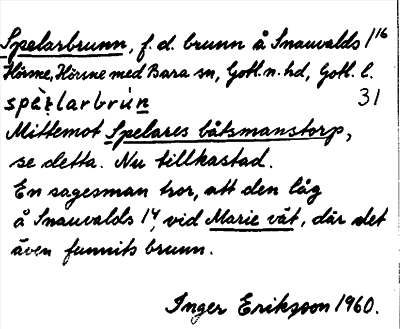 Spelarbrunn, f.d. brunn å Snauvalds 1/16
Hörsne, Hörsne med Bara sn, Gotl. n. hd, Gotl. l.
spe̦łarbrún 31
Mittemot Spelares båtsmanstorp,
se detta. Nu tillkastad.
En sagesman tror, att den låg
å Snauvalds 1/4, vid Marie vät, där det
även funnits brunn.
Inger Eriksson 1960.